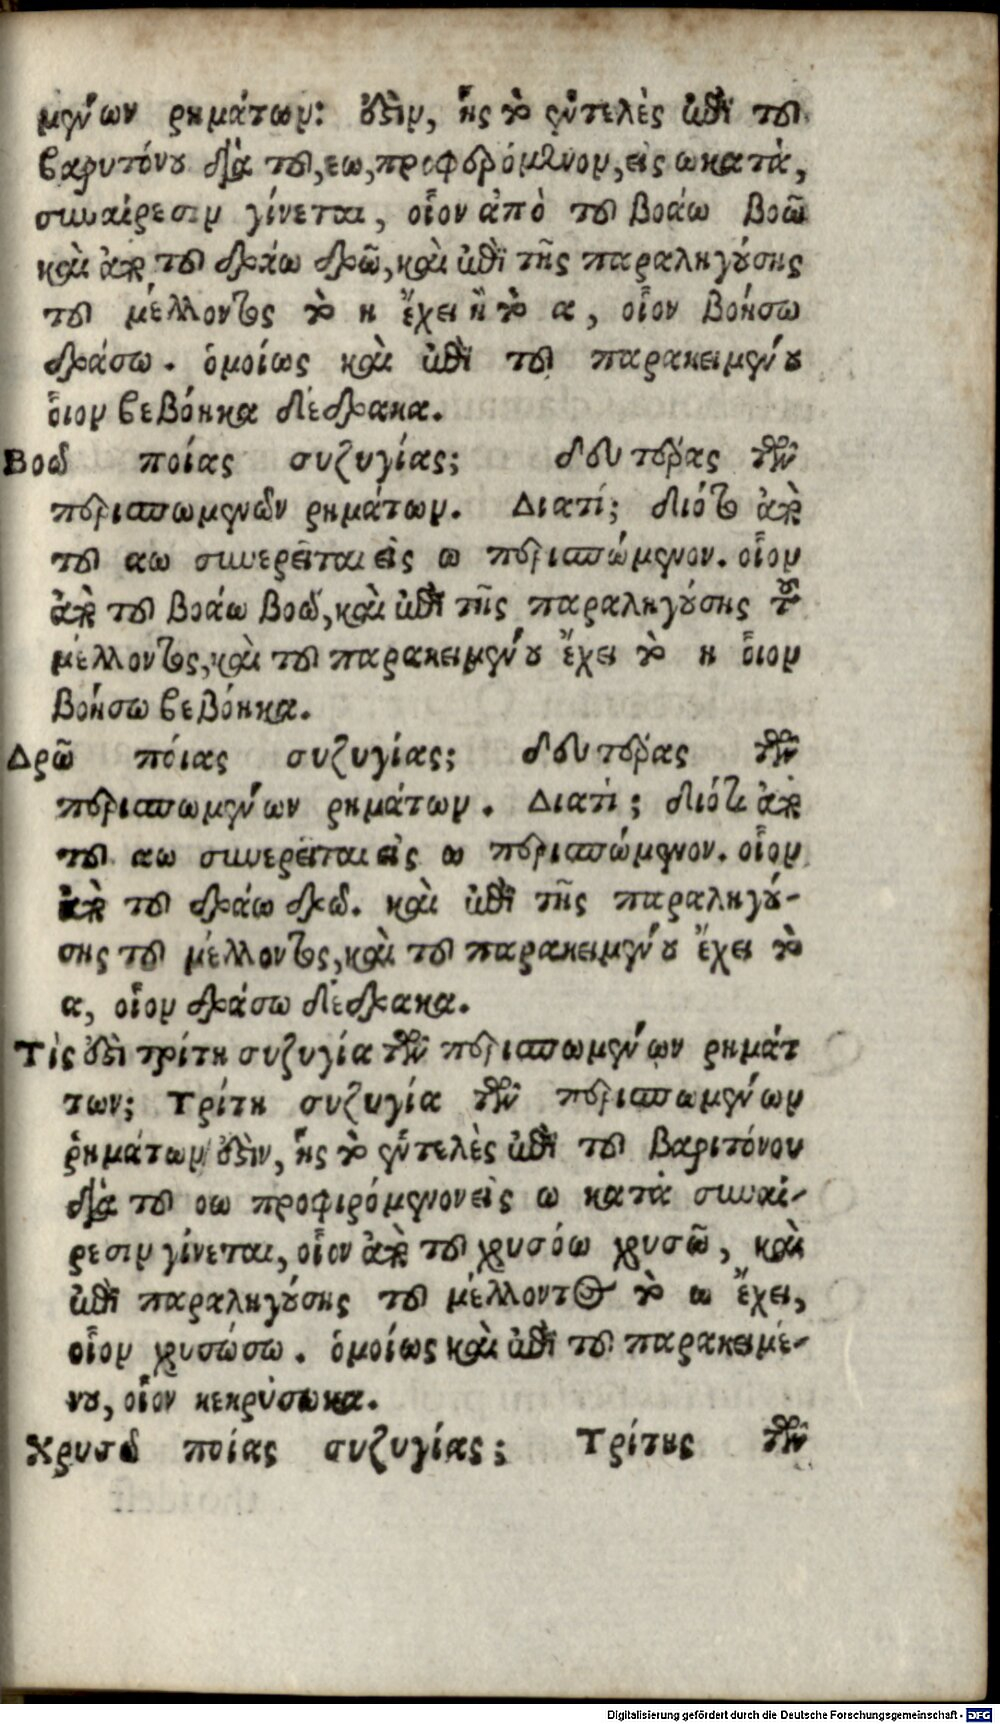 μένων ρημάτων: ἐστὶν, ἧς τὸ ἐντελὲς ἐπὶ τοῦ
βαρυτόνου διὰ τοῦ, εω, προφερόμενον, εἰς ω κατὰ,
συναίρεσιν γίνεται, οἷον ἀπὸ τοῦ βοάω βοῶ
καὶ ἀπὸ τοῦ δράω δρῶ, καὶ ἐπὶ τῆς παραληγούσης
τοῦ μέλλοντος τὸ η ἔχει ἢ τὸ α, οἷον βοήσω
δράσω. ὁμοίως καὶ ἐπὶ τοῦ παρακειμένου
οἷον βεβόηκα δέδρακα.
Βοῶ ποίας συζυγίας; δευτέρας τῶν
περισπωμένων ρημάτων. Διατί; διότι ἀπὸ
τοῦ αω συνερεῖται εἰς ω περισπώμενον. οἷον
ἀπὸ τοῦ βοάω βοῶ, καὶ ἐπὶ τῆς παραληγούσης τοῦ
μέλλοντος, καὶ τοῦ παρακειμένου ἔχει τὸ η οἷον
βοήσω βεβόηκα.
Δρῶ πόιας συζυγίας; δευτέρας τῶν
περισπωμένων ρημάτων. Διατί; διότι ἀπὸ
τοῦ αω συνερεῖται εἰς ω περισπώμενον. οἷον
ἀπὸ τοῦ δράω δρῶ. καὶ ἐπὶ τῆς παραληγού-
σης τοῦ μέλλοντος, καὶ τοῦ παρακειμένου ἔχει τὸ
α, οἷον δράσω δέδρακα.
Τίς ἐστὶ τρίτη συζυγία τῶν περισπωμένων ρημάτ
των; Τρίτη συζυγία τῶν περισπωμένων
ῥημάτων ἐστὶν, ἧς τὸ ἐντελὲς ἐπὶ τοῦ βαριτόνου
διὰ τοῦ οω προφιρόμενον εἰς ω κατὰ συναί-
ρεσιν γίνεται, οἷον ἀπὸ τοῦ χρυσόω χρυσῶ, καὶ
ἐπὶ παραληγούσης τοῦ μέλλοντος τὸ ω ἔχει,
οἷον χρυσώσω. ὁμοίως καὶ ἐπὶ τοῦ παρακειμέ-
νου, οἷον κεκρύσωκα.
Χρυσῶ ποίας συζυγίας; Τρίτης τῶν
Digitalisierung gefördert durch die Deutsche Forschungsgemeinschaft - DFG